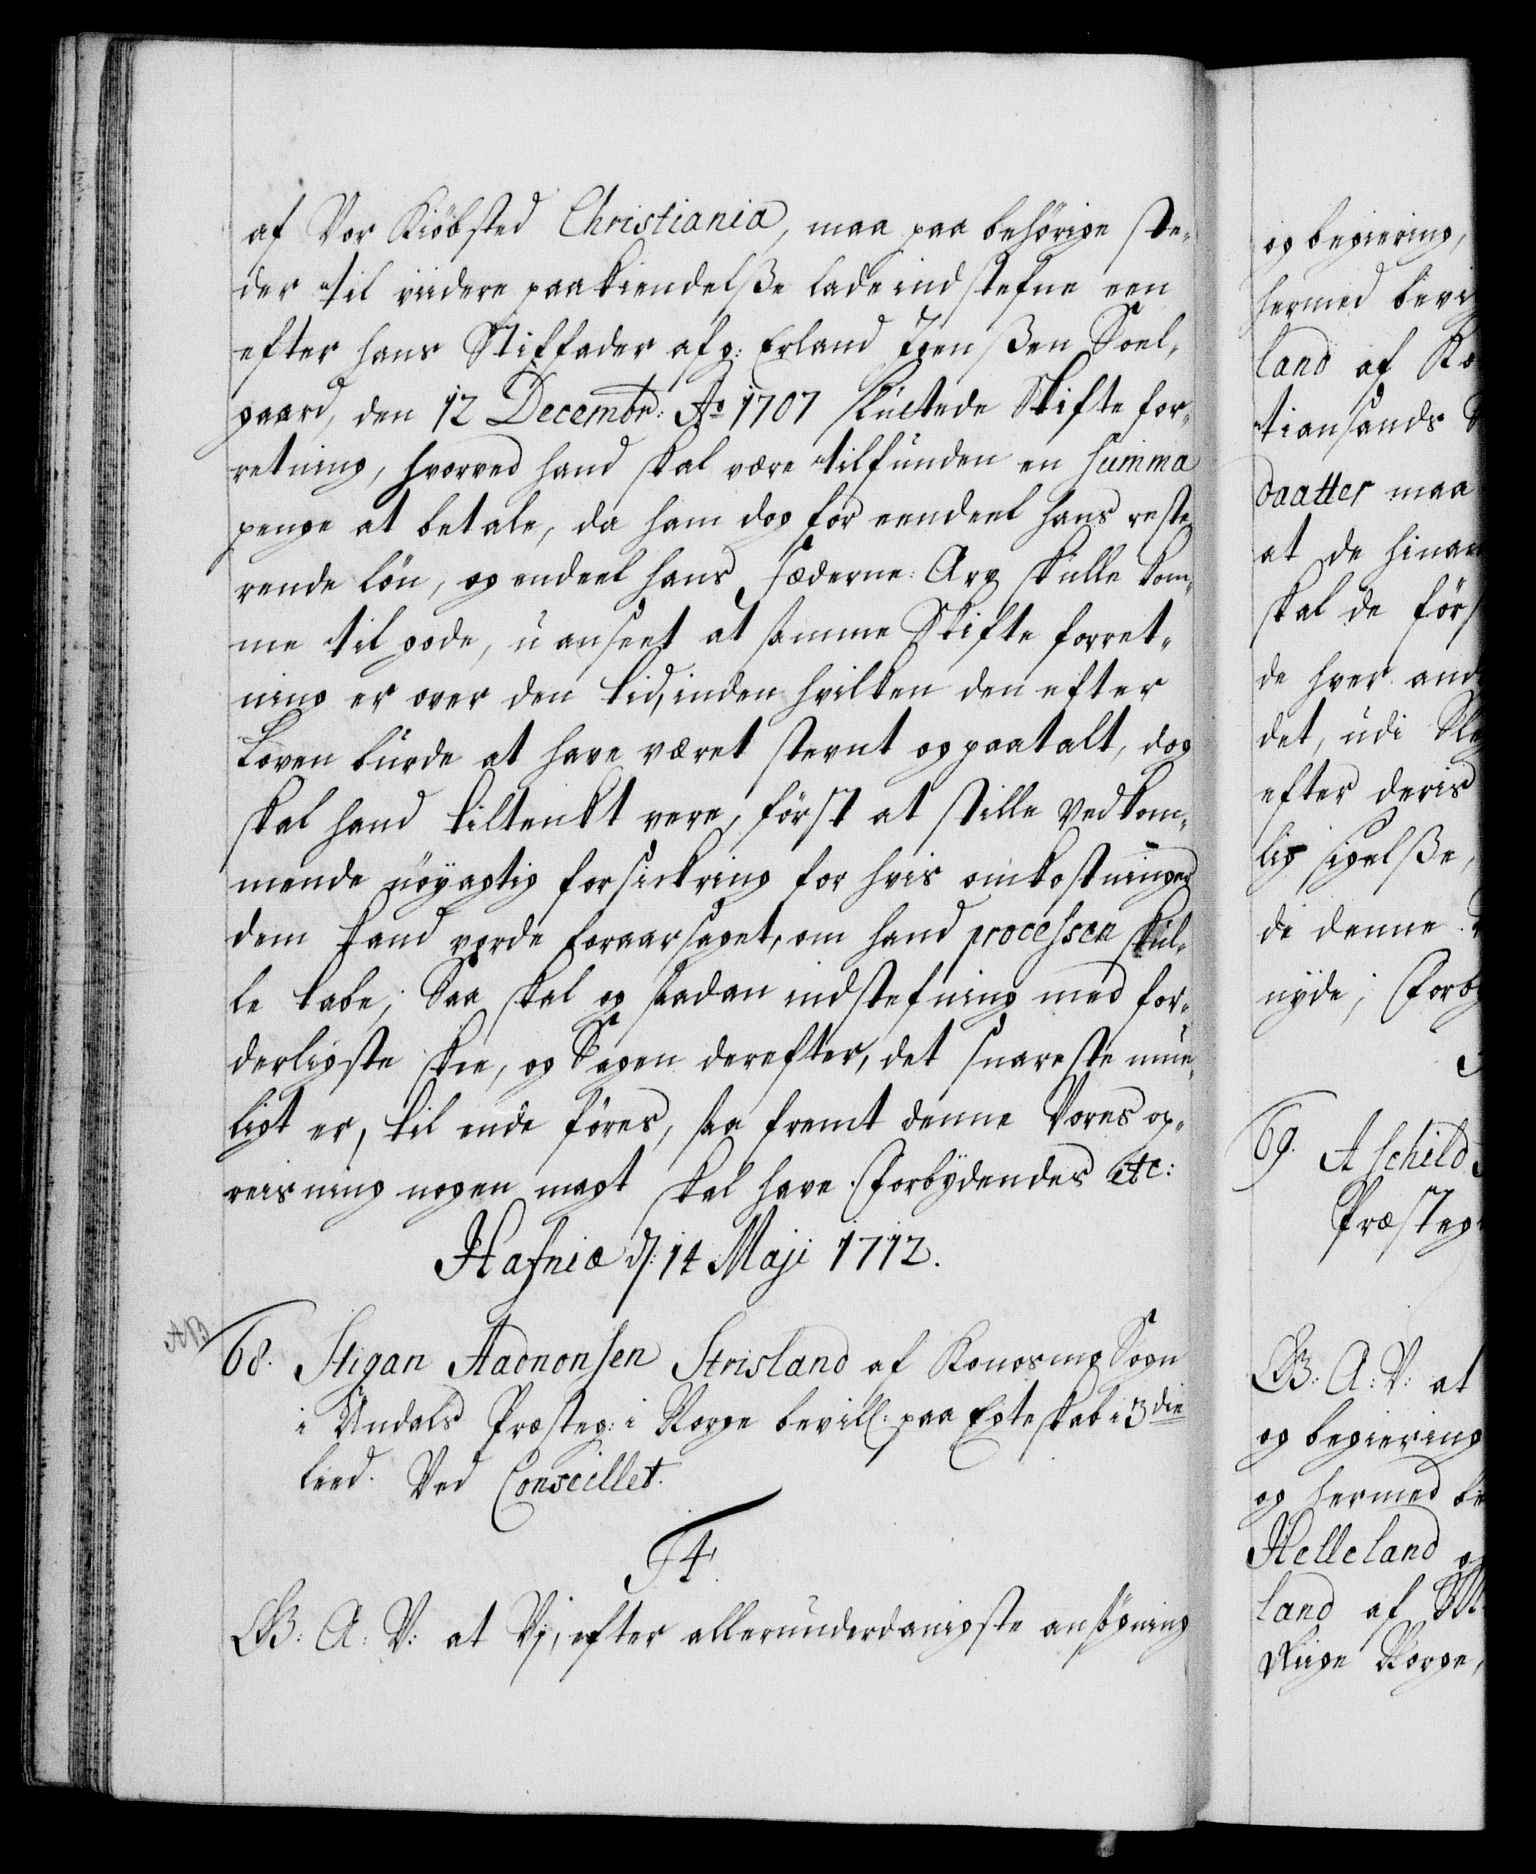 af Vor Kiöbsted Christiania, maa paa behörige ste„
der til viidere paakiendelße lade indstefne een
efter hans Stiffader afg: Erland Jgenßen Soel„
gaard, den 12 Decembr: Ao 1707 sluttede Skifte for„
retning, hvorved hand skal være tilfunden en summa
penge at betale, da ham dog for eendeel hans reste„
rende lön, og endeel hans Fæderne: Arv skulle kom„
me til gode, uanseet at samme Skifte forret„
ning er over den tid, inden hvilken den efter
Loven burde at have været stevnt og paatalt, dog
skal hand tiltenkt vere, först at stille Vedkom„
mende nöyagtig forsickring for hvis omkostninger
dem kand vorde foraarsaget, om hand processen skul„
le tabe; Saa skal og saadan indstefning med for„
derligste skee, og Sagen derefter, det snareste mue„
ligt er, til ende föres, saa fremt denne Vores op„
reisning nogen magt skal have. Forbydendes etc:
Hafniæ d: 14 Maji 1712.
AB
68. Stigan Aadnonsen Strisland af Konosmg Sogn
i Undals Præsteg: i Norge bevill: paa Egteskab i 3die
leed. Ved Conseillet.
F4.
G B: A: V: at Vj, efter allerunderdanigste ansögning
og begiering,
hermed bevi
land af Ko
tiansands S
daatter maa
at de hinan
skal de förs
de hver and
det, udi Sle
efter deris
lig sigelße,
de denne
nyde; Forby
69. Aschild
Præsteg
G B: A: V: at
og begiering
og hermed be
Helleland og
land af
Riige Norge,